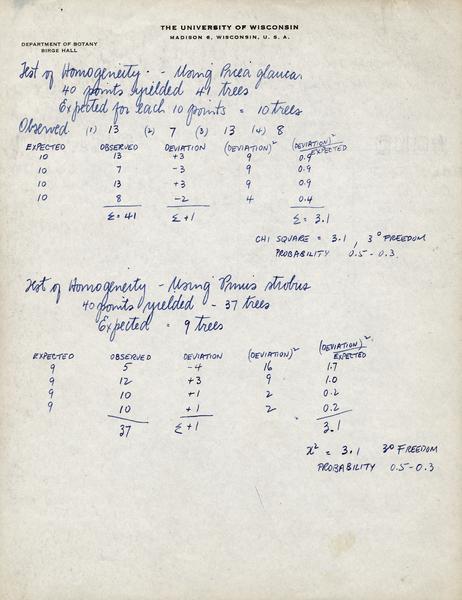 THE UNIVERSITY OF WISCONSIN
MADISON 6, WISCONSIN, U. S. A.
DEPARTMENT OF BOTANY
BIRGE HALL
Test of Homogeneity - Using Picea glauca
40 points yielded 41 trees
Expected for each 10 points = 10 trees
Observed (1) 13 (2) 7 (3) 13 (4) 8
EXPECTED OBSERVED DEVIATION (DEVIATION)² (DEVIATION)²/EXPECTED
10 13 +3 9 0.9
10 7 -3 9 0.9
10 13 +3 9 0.9
10 8 -2 4 0.4
Σ= 41 Σ+1 Σ = 3.1
CHI SQUARE = 3.1, 3° FREEDOM
PROBABILITY 0.5 - 0.3
Test of Homogeneity - Using Pinus strobus
40 points yielded - 37 trees
Expected = 9 trees
EXPECTED OBSERVED DEVIATION (DEVIATION)² (DEVIATION)²/EXPECTED
9 5 -4 16 1.7
9 12 +3 9 1.0
9 10 +1 2 0.2
9 10 +1 2 0.2
37 Σ+1 3.1
x² = 3.1 3° FREEDOM
PROBABILITY 0.5 - 0.3